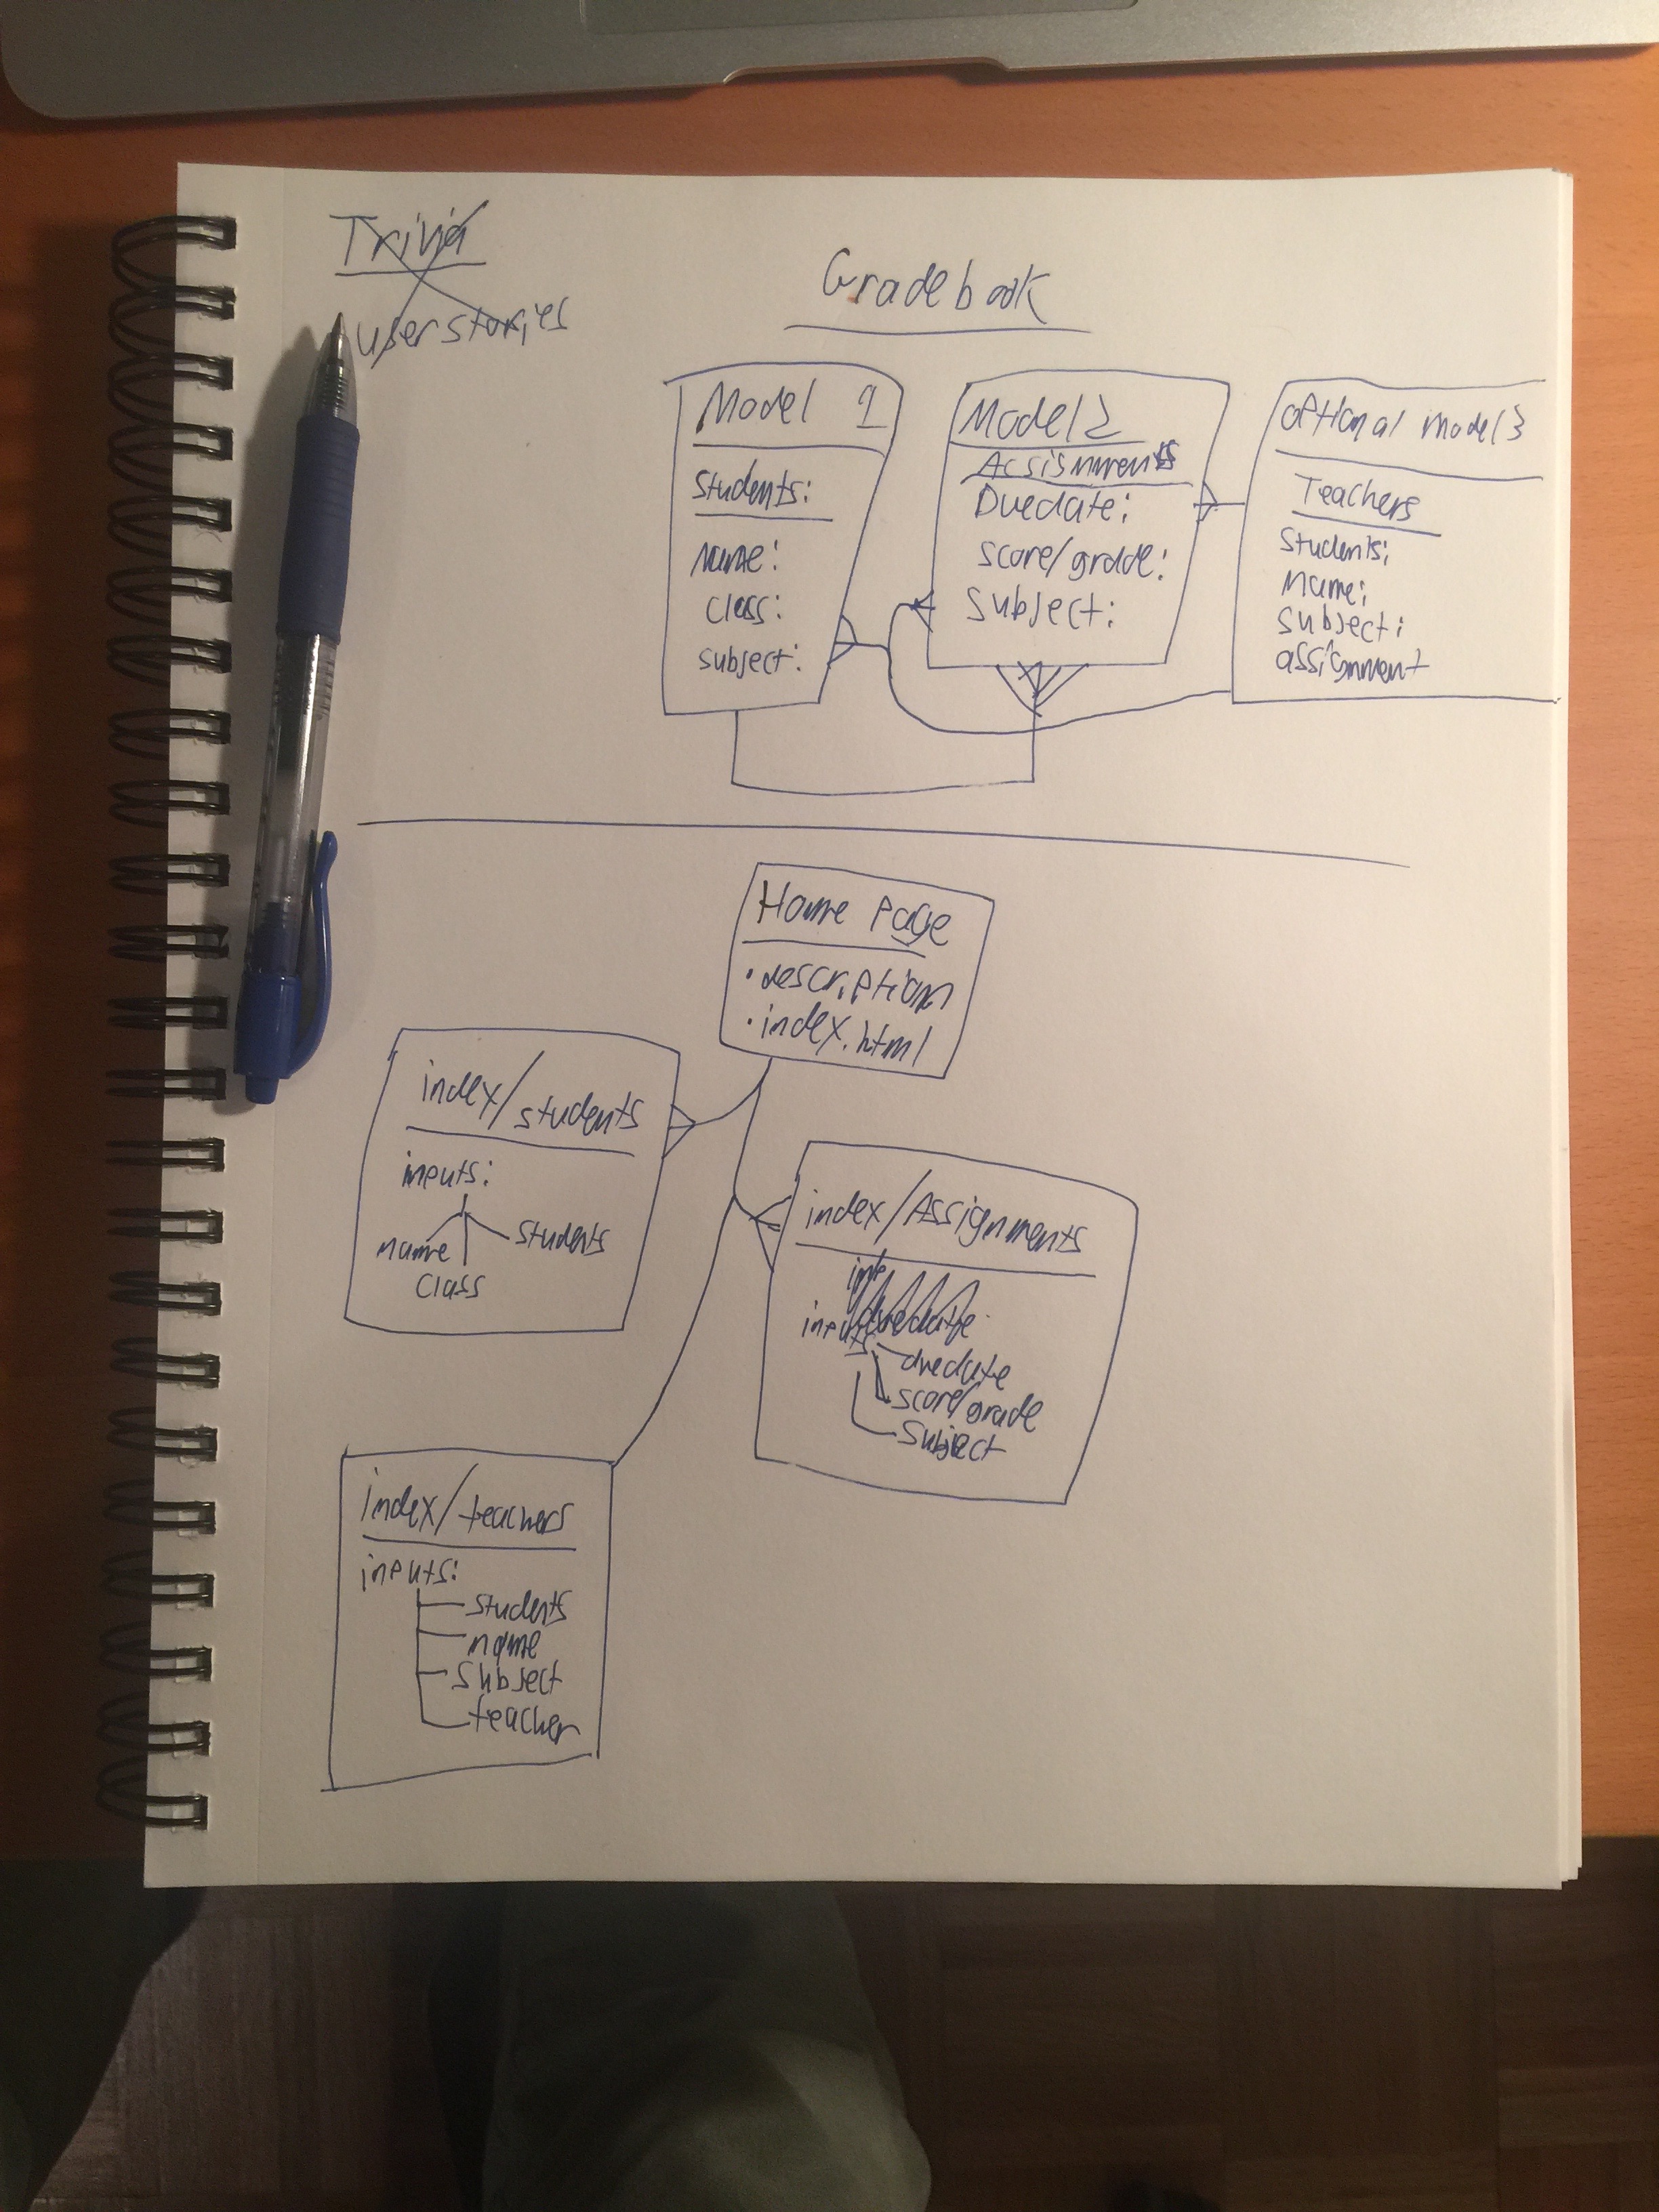 Trivia
user stories
Gradebook
Model 1
Students:
name:
class:
subject:
Model 2
Assisnments
Duedate:
score/grade:
Subject:
optional model 3
Teachers
Students:
Name:
subject:
assignment
Home Page
• description
• index.html
index/students
inputs:
name
students
class
index/Assignments
inp
duedate
inputs
duedate
score/grade
Subject
index/teachers
inputs:
students
name
Subject
teacher